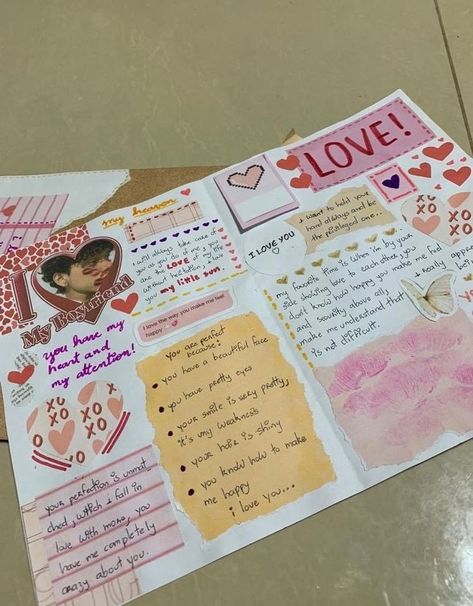 my heaven
I will always take care of
you as you do of me, you
are the LOVE of my life
without hesitation, I love
you my little bun.
I
My Boyfriend
you have my
heart and
my attention!
XO
XO
XO
XO
your perfection is unmat
ched, which I fall in
love with more, you
have me completely
crazy about you.
I love the way you make me feel
happy
you are perfect
because:
you have a beautiful face
you have pretty eyes
your smile is very pretty,
it's my weakness
your hair is shiny
you know how to make
me happy
i love you...
LOVE!
I want to hold your
hand always and be
the privileged one..
I LOVE YOU
my favorite time is when i'm by your
side showing love to each other, you
don't know how happy you make me feel
and security above all, I really
make me understand that
is not difficult.
XO
XO